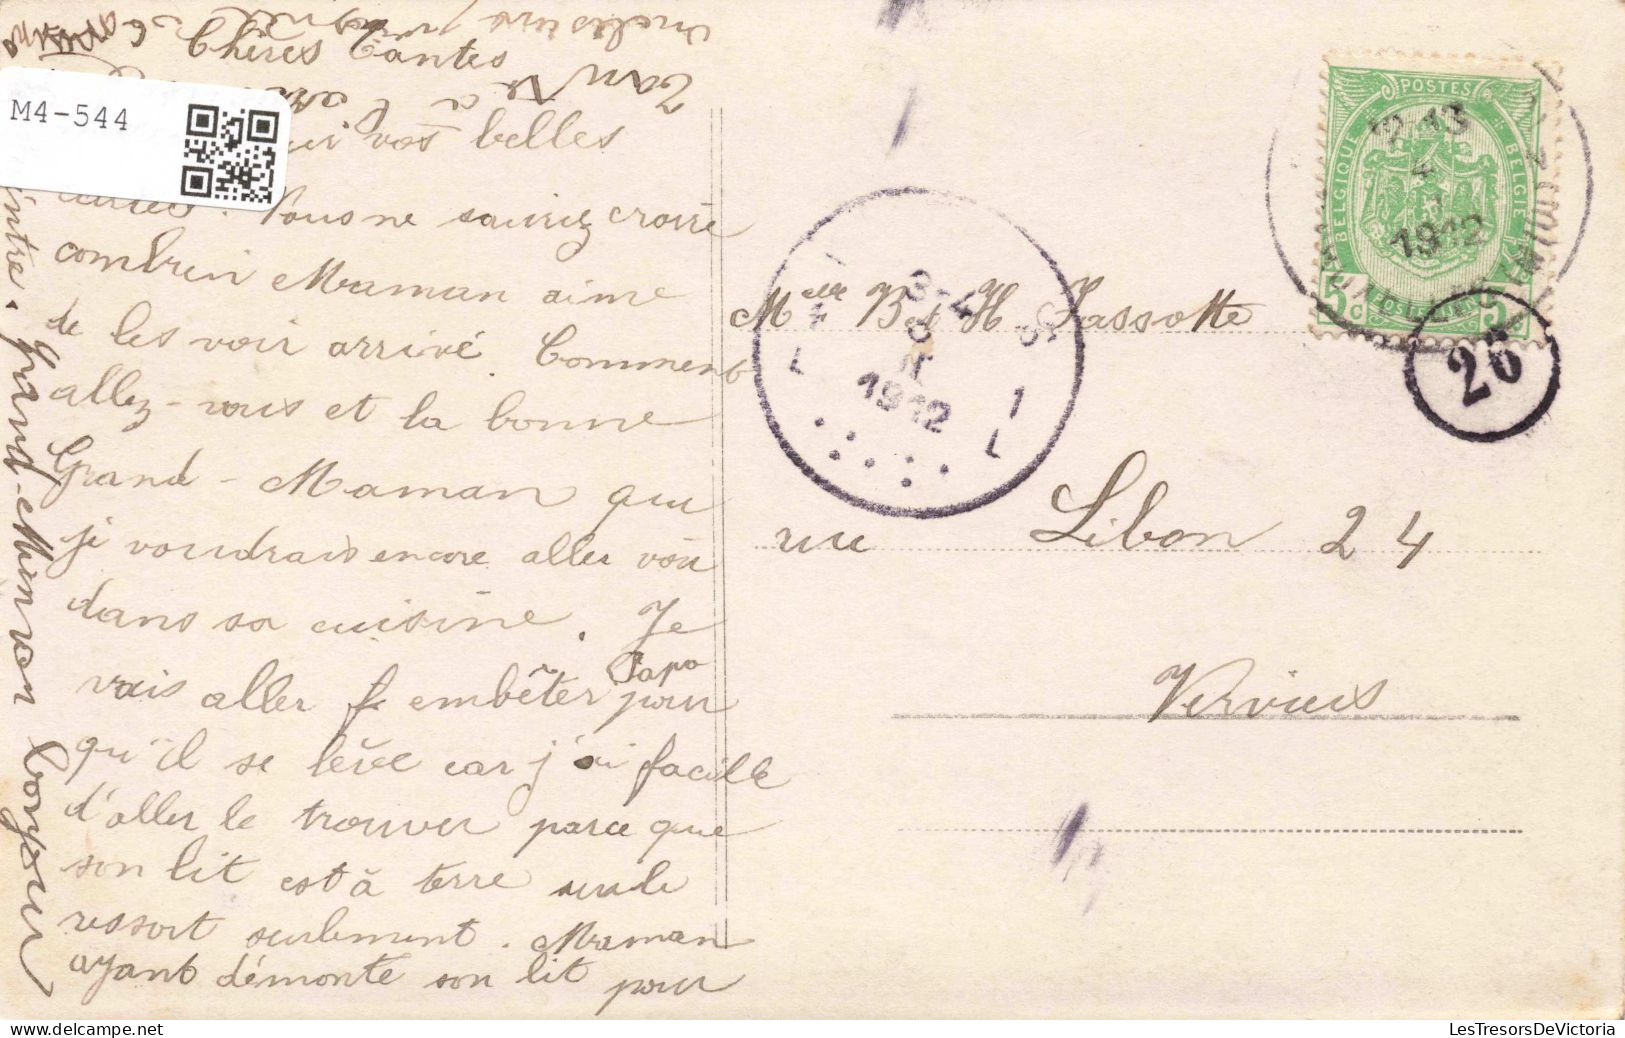 Chères Tantes
M4-544
vos belles
cartes. Vous ne sauriez croire
combien Maman aime
de les voir arrivé. Comment
allez-vous et la bonne
Grand-Maman que
je voudrais encore aller voir
dans sa cuisine. Je
vais aller embêter Papa pour
qu'il se lève car j'ai facille
d'aller le trouver parce que
son lit est à terre sur le
ressort seulement. Maman
ayant démonté son lit pour
peintre. Grand-Maman bonjour
Melle B. et H. Fassotte
rue Libon 24
Verviers
POSTES
BELGIQUE
BELGIE
5 C
5 C
1912
3-4
1912
26
LesTresorsDeVictoria.com